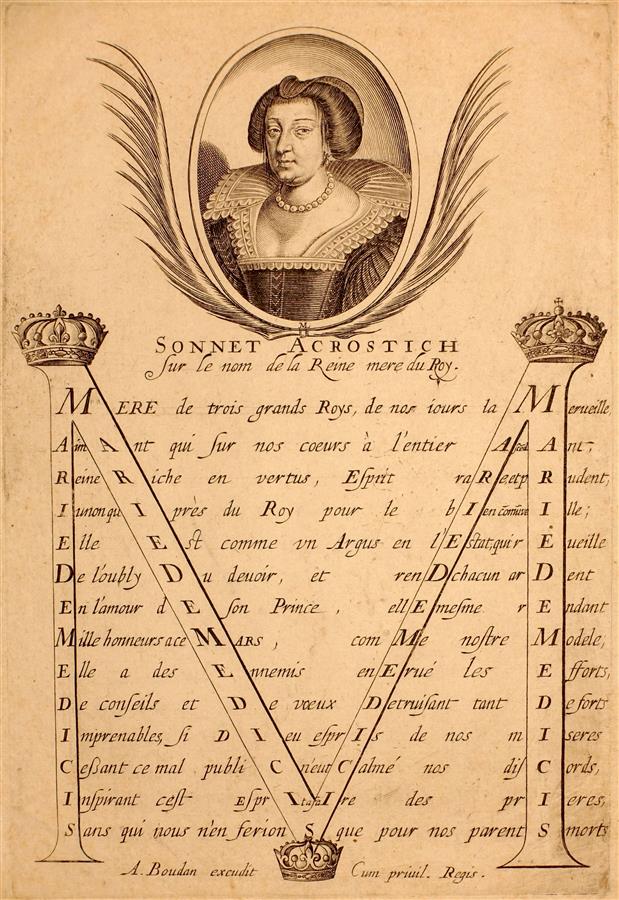 SONNET ACROSTICH
Sur le nom de la Reine mere du Roy.
MERE de trois grands Roys, de nos iours la Merveille,
Aim Ant qui sur nos coeurs à l'entier Ant,
Reine Riche en vertus, Esprit raRe, et pRudent,
Iunon qu I près du Roy pour le bIen Ille;
Elle Est comme vn Argus en l'Estat, qui rEueille
De l'oubly Du deuoir, et renD chacun arDent
En l'amour dE son Prince, ellE mesme rEndant
Mille honneurs a ce MARS, comMe nostre Modele;
Elle a des Ennemis enErué les Efforts,
De conseils et De vœux Detruisant tant De forts
Imprenables, si DIeu esprIs de nos mIseres
Cessant ce mal publiC n'eut Calmé nos disCords,
Inspirant cest EsprIt a faIre des prIeres,
Sans qui nous n'en ferionS que pour nos parentS morts
A. Boudan excudit Cum priuil. Regis.